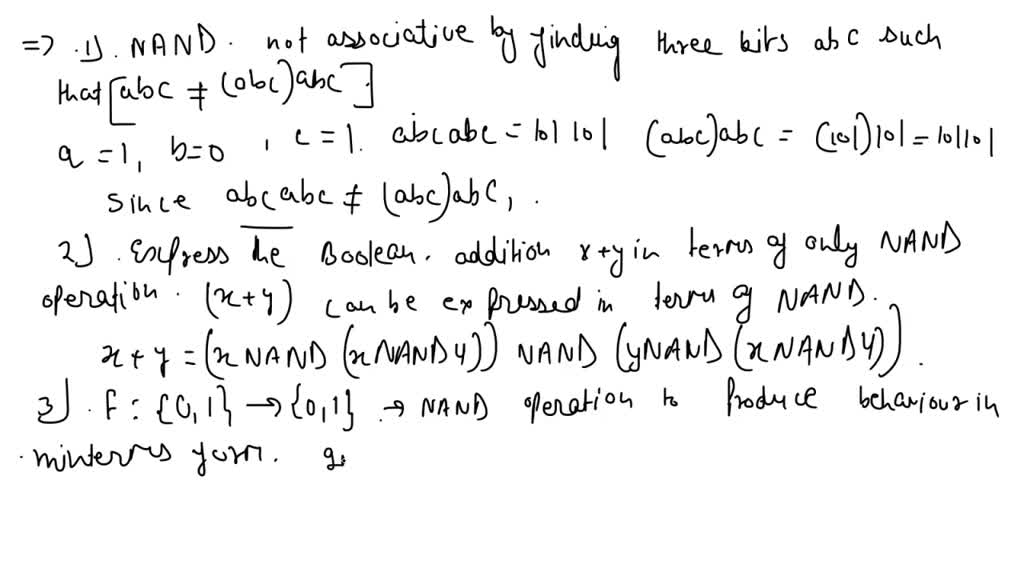 => .1). NAND. not associative by finding three bits abc such
that [abc ≠ (abc)abc]
a = 1, b=0 , c = 1. abcabc = 101 101 (abc)abc = (101)101 = 101101
Since abcabc ≠ (abc)abc, .
2) . Express the Boolean. addition x+y in terms of only NAND
operation. (x+y) can be expressed in terms of NAND.
x + y = (x NAND (x NAND Y)) NAND (y NAND (x NAND Y)) .
3) . f : {0,1} → {0,1} → NAND operation to Produce behaviour in
minterms form. g